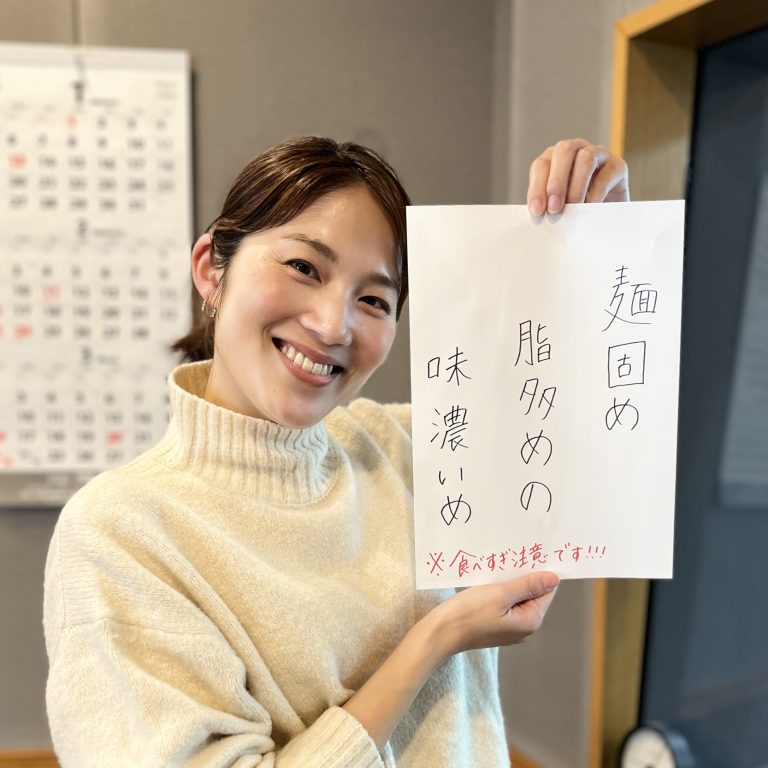 麺固め
脂多めの
味濃いめ
※食べすぎ注意です!!!
1
2
3